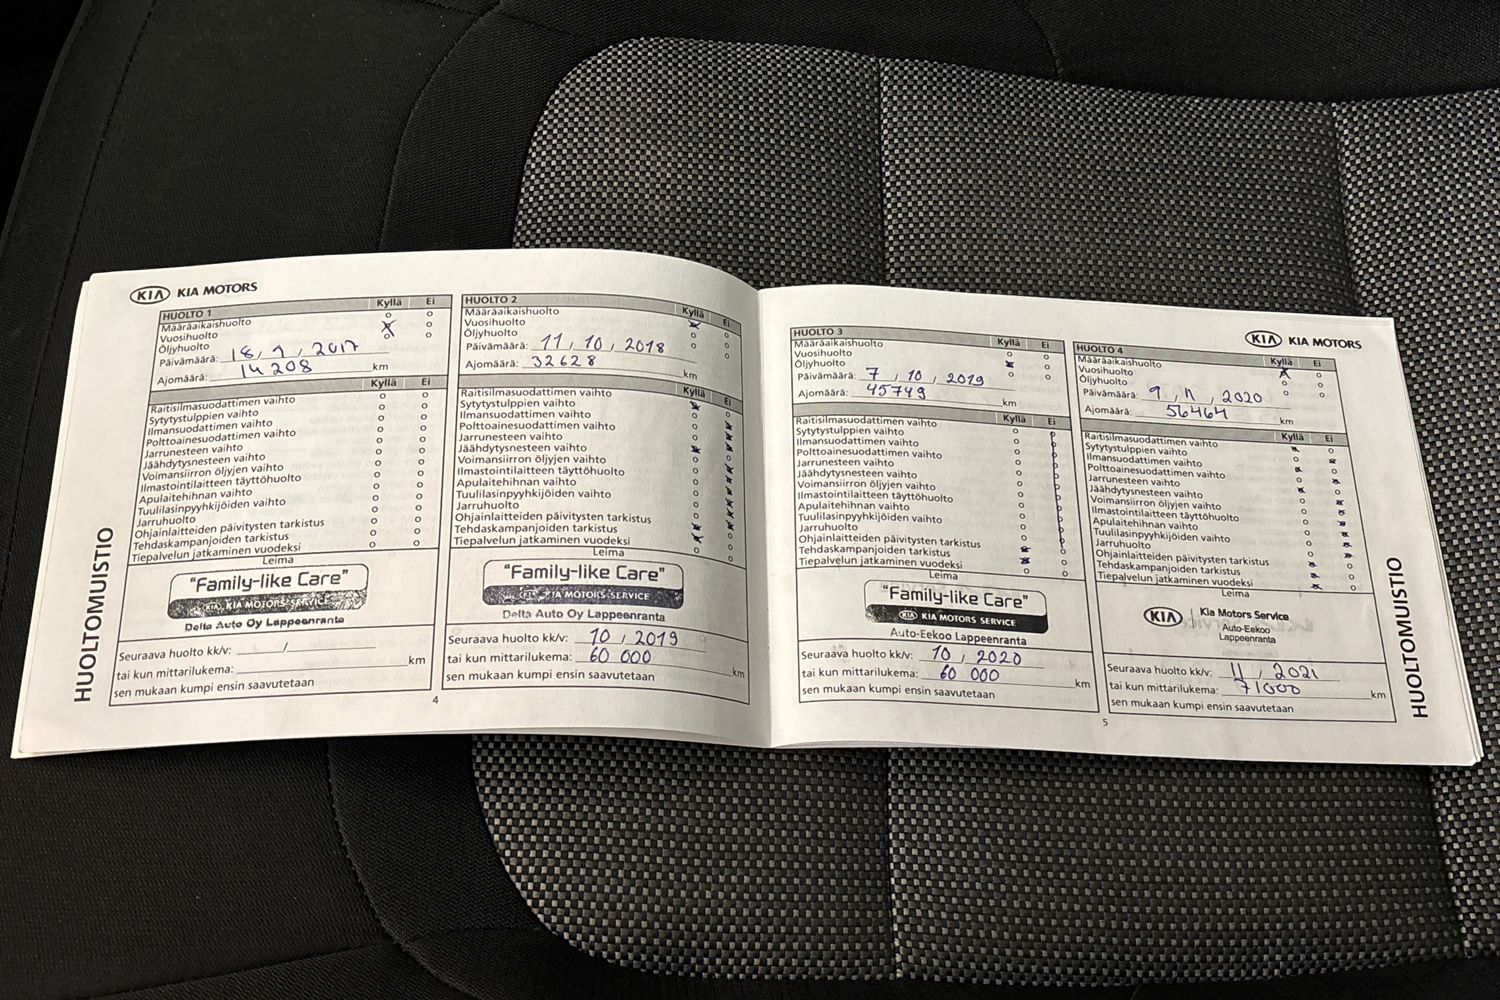 KIA KIA MOTORS
HUOLTO 1
Kyllä Ei
Määräaikaishuolto
Vuosihuolto
Öljyhuolto
Päivämäärä: 18, 9, 2017
Ajomäärä: 14 208 km
Kyllä Ei
Raitisilmasuodattimen vaihto
Sytytystulppien vaihto
Ilmansuodattimen vaihto
Polttoainesuodattimen vaihto
Jarrunesteen vaihto
Jäähdytysnesteen vaihto
Voimansiirron öljyjen vaihto
Ilmastointilaitteen täyttöhuolto
Apulaitehihnan vaihto
Tuulilasinpyyhkijöiden vaihto
Jarruhuolto
Ohjainlaitteiden päivitysten tarkistus
Tehdaskampanjoiden tarkistus
Tiepalvelun jatkaminen vuodeksi
Leima
"Family-like Care"
KIA KIA MOTORS SERVICE
Delta Auto Oy Lappeenranta
Seuraava huolto kk/v: /
tai kun mittarilukema: km
sen mukaan kumpi ensin saavutetaan
HUOLTOMUISTIO
HUOLTO 2
Kyllä Ei
Määräaikaishuolto
Vuosihuolto
Öljyhuolto
Päivämäärä: 11, 10, 2018
Ajomäärä: 32628 km
Kyllä Ei
Raitisilmasuodattimen vaihto
Sytytystulppien vaihto
Ilmansuodattimen vaihto
Polttoainesuodattimen vaihto
Jarrunesteen vaihto
Jäähdytysnesteen vaihto
Voimansiirron öljyjen vaihto
Ilmastointilaitteen täyttöhuolto
Apulaitehihnan vaihto
Tuulilasinpyyhkijöiden vaihto
Jarruhuolto
Ohjainlaitteiden päivitysten tarkistus
Tehdaskampanjoiden tarkistus
Tiepalvelun jatkaminen vuodeksi
Leima
"Family-like Care"
KIA KIA MOTORS SERVICE
Delta Auto Oy Lappeenranta
Seuraava huolto kk/v: 10, 2019
tai kun mittarilukema: 60 000 km
sen mukaan kumpi ensin saavutetaan
4
HUOLTO 3
Kyllä Ei
Määräaikaishuolto
Vuosihuolto
Öljyhuolto
Päivämäärä: 7, 10, 2019
Ajomäärä: 45749 km
Kyllä Ei
Raitisilmasuodattimen vaihto
Sytytystulppien vaihto
Ilmansuodattimen vaihto
Polttoainesuodattimen vaihto
Jarrunesteen vaihto
Jäähdytysnesteen vaihto
Voimansiirron öljyjen vaihto
Ilmastointilaitteen täyttöhuolto
Apulaitehihnan vaihto
Tuulilasinpyyhkijöiden vaihto
Jarruhuolto
Ohjainlaitteiden päivitysten tarkistus
Tehdaskampanjoiden tarkistus
Tiepalvelun jatkaminen vuodeksi
Leima
"Family-like Care"
KIA KIA MOTORS SERVICE
Auto-Eekoo Lappeenranta
Seuraava huolto kk/v: 10, 2020
tai kun mittarilukema: 60 000 km
sen mukaan kumpi ensin saavutetaan
KIA KIA MOTORS
HUOLTO 4
Kyllä Ei
Määräaikaishuolto
Vuosihuolto
Öljyhuolto
Päivämäärä: 9, 11, 2020
Ajomäärä: 56464 km
Kyllä Ei
Raitisilmasuodattimen vaihto
Sytytystulppien vaihto
Ilmansuodattimen vaihto
Polttoainesuodattimen vaihto
Jarrunesteen vaihto
Jäähdytysnesteen vaihto
Voimansiirron öljyjen vaihto
Ilmastointilaitteen täyttöhuolto
Apulaitehihnan vaihto
Tuulilasinpyyhkijöiden vaihto
Jarruhuolto
Ohjainlaitteiden päivitysten tarkistus
Tehdaskampanjoiden tarkistus
Tiepalvelun jatkaminen vuodeksi
Leima
KIA Kia Motors Service
Auto-Eekoo
Lappeenranta
Seuraava huolto kk/v: 11, 2021
tai kun mittarilukema: 71000 km
sen mukaan kumpi ensin saavutetaan
5
HUOLTOMUISTIO